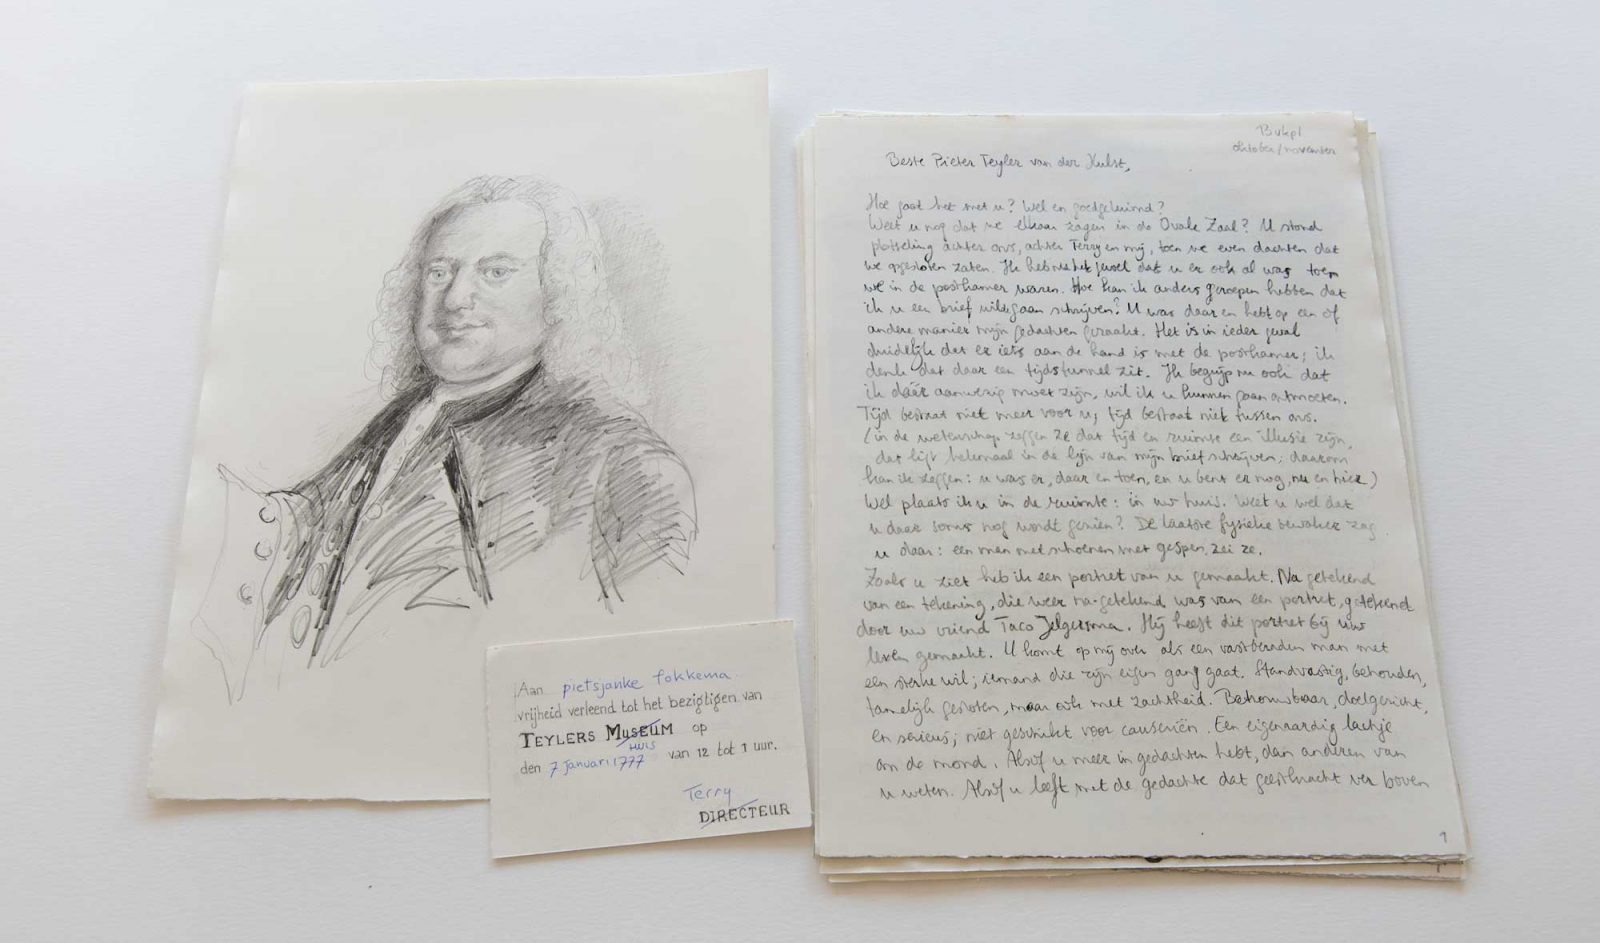 Aan pietsjanke fokkema
vrijheid verleend tot het bezigtigen van
TEYLERS MUSEUM op
HUIS
den 7 januari 1777 van 12 tot 1 uur.
Terry
DIRECTEUR
oktober/november
Beste Pieter Teyler van der Hulst,
Hoe gaat het met u? Wel en goedgeluimd?
Weet u nog dat we elkaar zagen in de Ovale Zaal? U stond
plotseling achter ons, achter Terry en mij, toen we even dachten dat
we opgesloten zaten. Ik heb het gevoel dat u er ook al was toen
we in de postkamer waren. Hoe kan ik anders geroepen hebben dat
ik u een brief wilde gaan schrijven? U was daar en hebt op een of
andere manier mijn gedachten geraakt. Het is in ieder geval
duidelijk dat er iets aan de hand is met de postkamer; ik
denk dat daar een tijdstunnel zit. Ik begrijp nu ook dat
ik dáár aanwezig moet zijn, wil ik u kunnen gaan ontmoeten.
Tijd bestaat niet meer voor u, tijd bestaat niet tussen ons.
(in de wetenschap zeggen ze dat tijd en ruimte een illusie zijn,
dat ligt helemaal in de lijn van mijn brief schrijven; daarom
kan ik zeggen: u was er, daar en toen, en u bent er nog, nu en hier.)
Wel plaats ik u in de ruimte: in uw huis. Weet u wel dat
u daar soms nog wordt gezien? De laatste fysieke bewoner zag
u daar: een man met schoenen met gespen, zei ze.
Zoals u ziet heb ik een portret van u gemaakt. Na getekend
van een tekening, die weer na-getekend was van een portret, getekend
door uw vriend Taco Jelgersma. Hij heeft dit portret bij uw
leven gemaakt. U komt op mij over als een vastberaden man met
een sterke wil; iemand die zijn eigen gang gaat. Standvastig, behouden,
tamelijk gesloten, maar ook met zachtheid. Betrouwbaar, doelgericht,
en serieus; niet geschikt voor causeriën. Een eigenaardig lachje
om de mond. Alsof u meer in gedachten hebt, dan anderen van
u weten. Alsof u leeft met de gedachte dat geestkracht ver boven
1